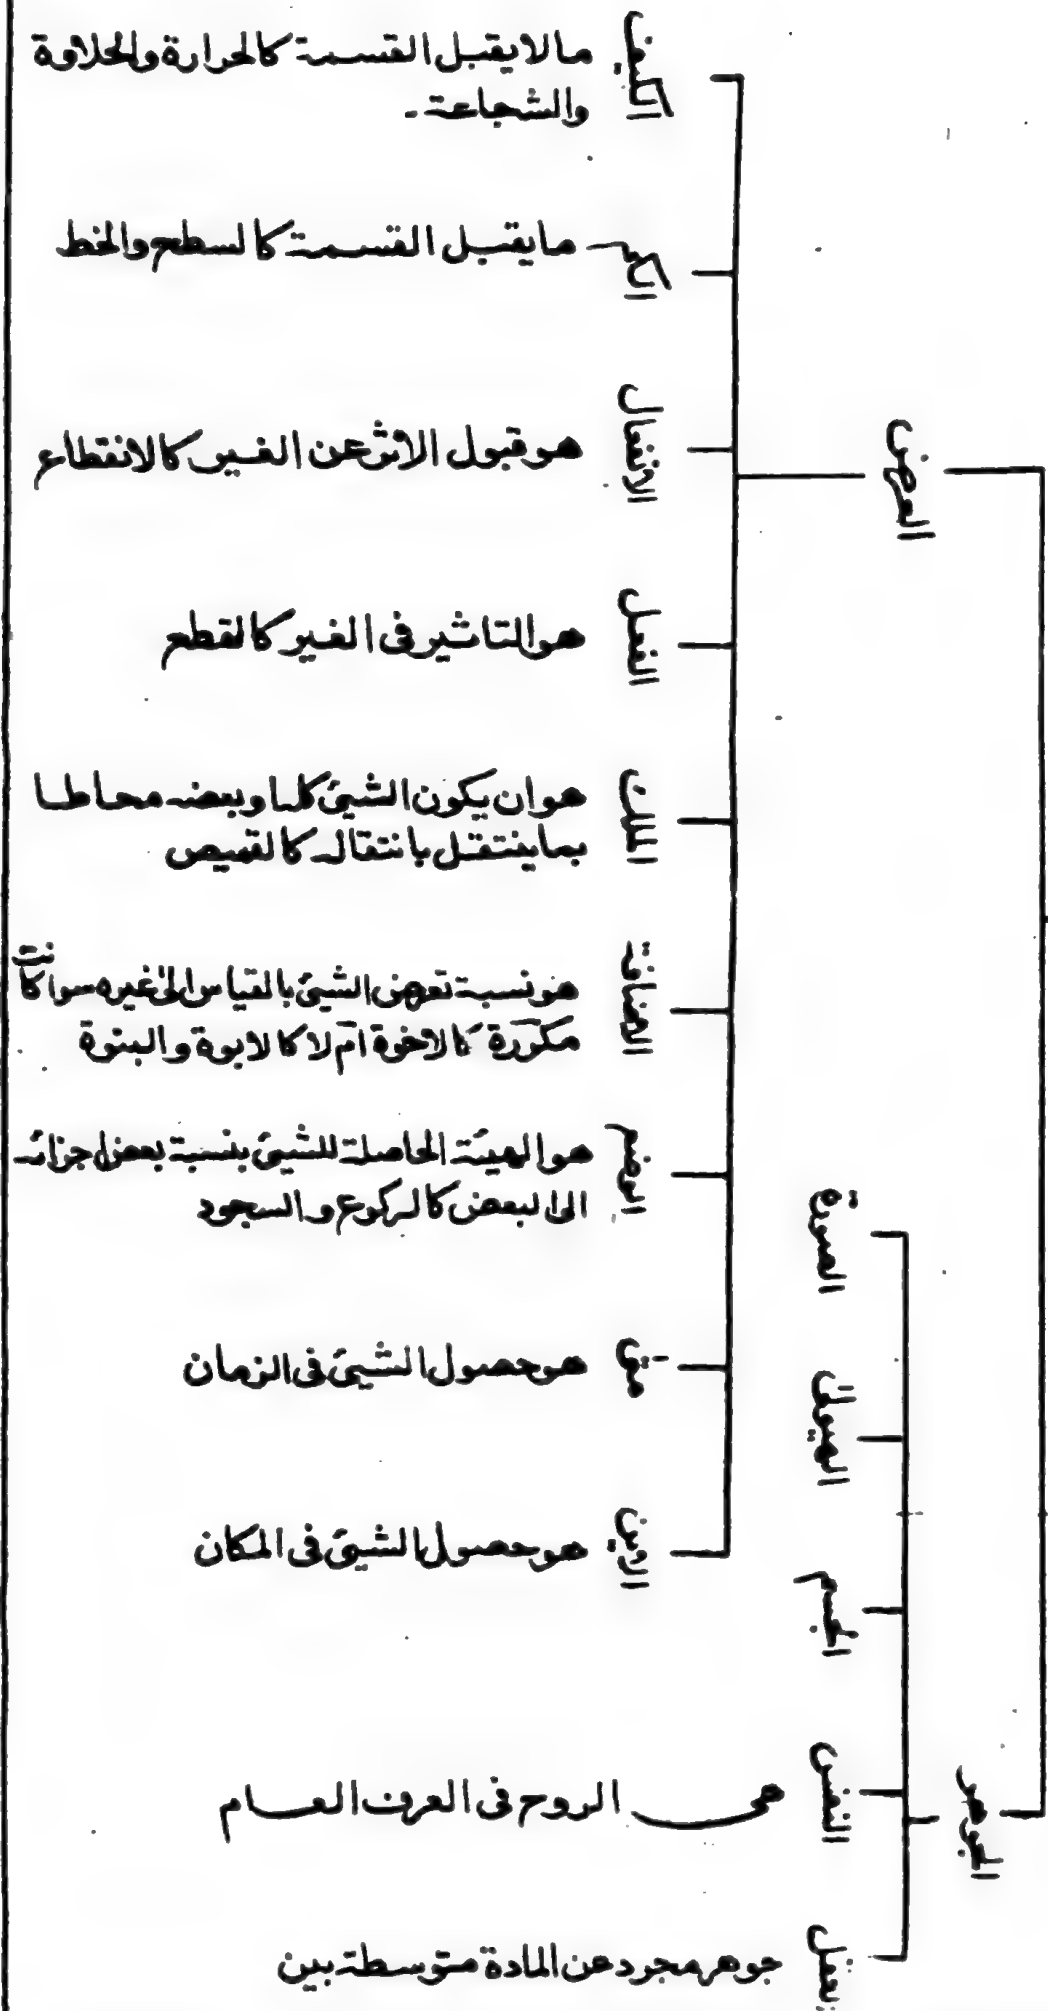 العرض
الكيف
ما لا يقبل القسمة كالحرارة والحلاوة
والشجاعة -
الكم
ما يقبل القسمة كالسطح والخط
الانفعال
هو قبول الاثر عن الغير كالانقطاع
الفعل
هو التاثير فى الغير كالقطع
الملك
هو ان يكون الشيئ كلا وبعضه محاطا
بما ينتقل بانتقاله كالقميص
الاضافة
هو نسبة تعرض الشيئ بالقياس الى غيره سوا كانت
مكررة كالاخوة ام لا كالابوة والبنوة
الوضع
هو الهيئة الحاصلة للشيئ بنسبة بعض اجزائه
الى البعض كالركوع والسجود
متى
هو حصول الشيئ فى الزمان
الاين
هو حصول الشيئ فى المكان
الجوهر
الصورة
الهيولى
الجسم
النفس
هى الروح فى العرف العام
العقل
جوهر مجرد عن المادة متوسطة بين